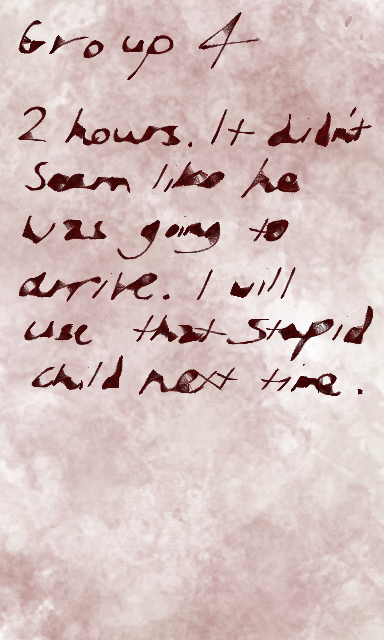 Group 4
2 hours. It didn't
Seem like he
was going to
arrive. I will
use that Stupid
child next time.